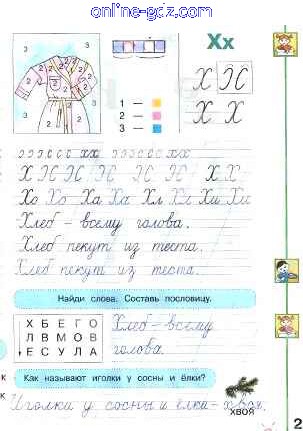 online-gdz.com
3 3
2 2 2 2
2 2
3 3
Хх
Х Х
Х Х
1 —
2 —
3 —
Х Х Х Х Х Х Х Х
Хо Хо Ха Ха Хл Хл Хи Хи
Хлеб – всему голова.
Хлеб пекут из теста.
Хлеб пекут из теста.
Найди слова. Составь пословицу.
Х Б Е Г О
Л В М О В
Е С У Л А
Хлеб – всему
голова.
Как называют иголки у сосны и ёлки?
Иголки у сосны и ёлки – хвоя.
ХВОЯ
2